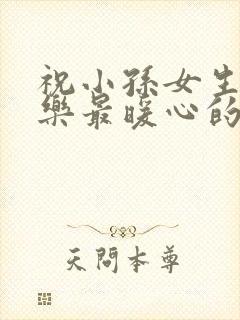 祝小孙女生
乐最暖心的
天問本尊